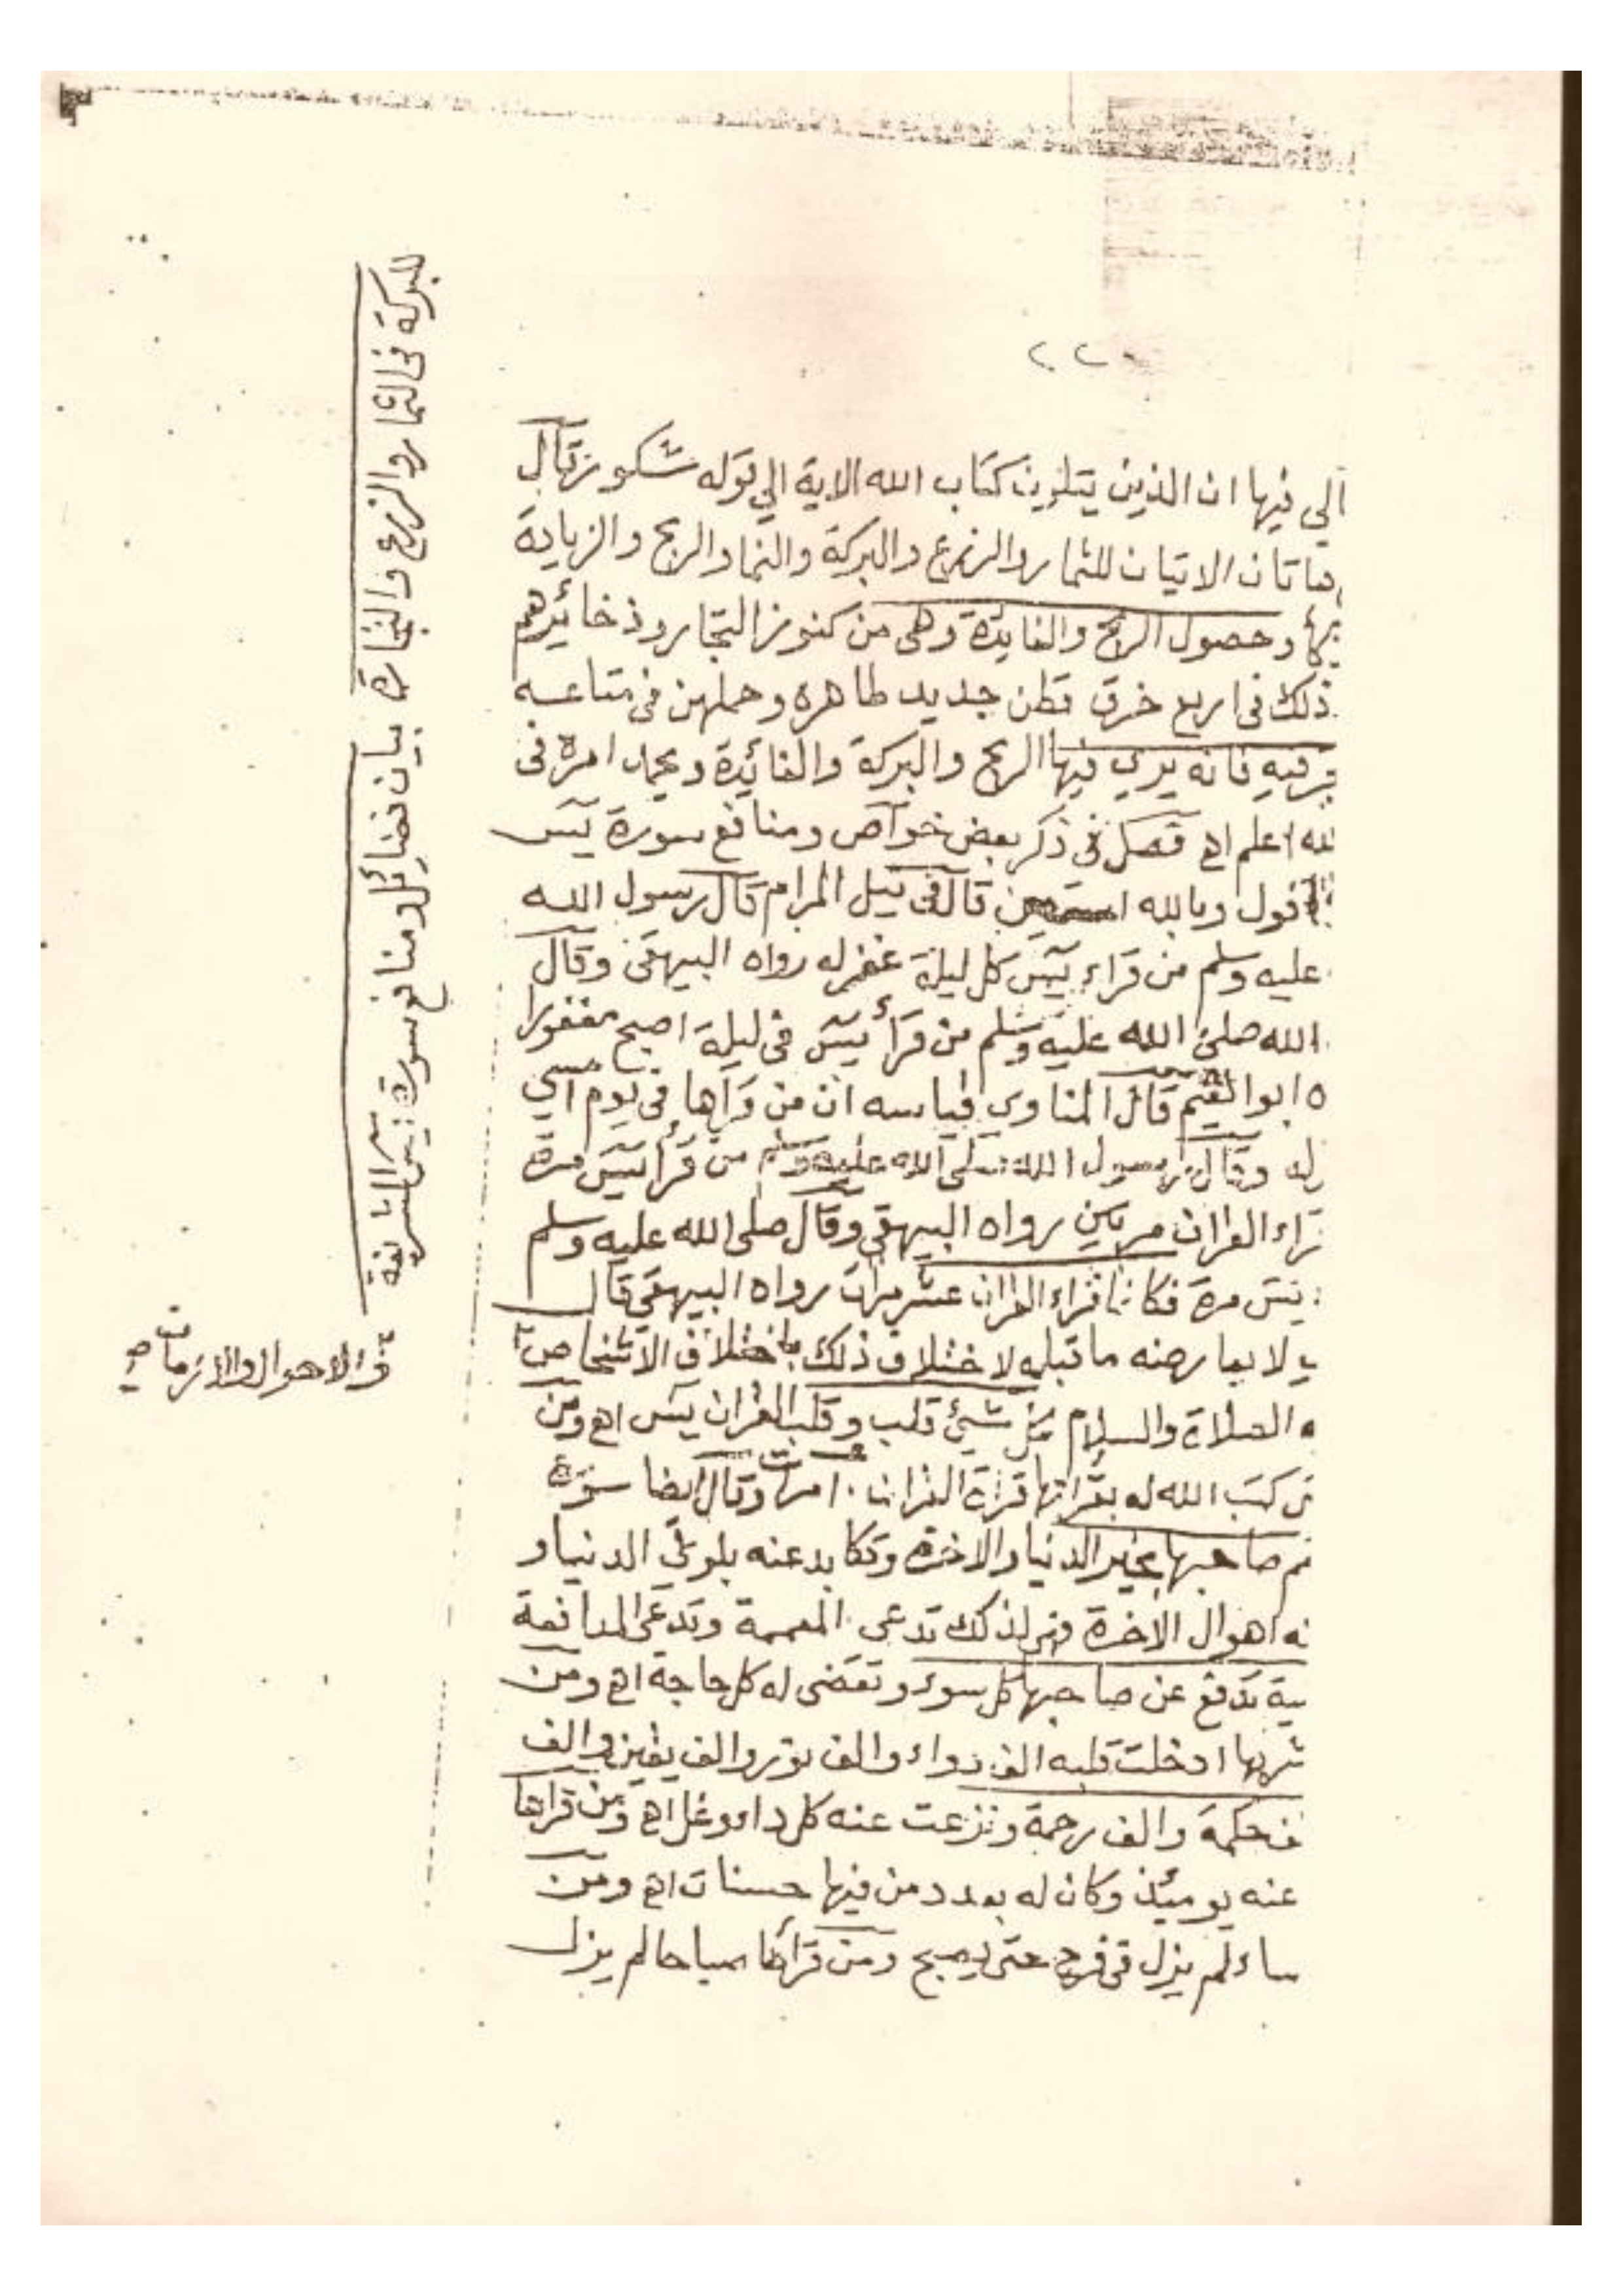 ٢٢٠
الي فيها ان الذين يتلون كتاب الله الاية الي قوله شكور قال
هاتان الايتان للثمار والزرع والبركة والنما والربح والزيادة
وحصول الربح والفايدة وهي من كنوز التجار وذخائرهم
ذلك في اربع خرق قطن جديد طاهره وحملهن في متاعه
فيه فانه يري فيها الربح والبركة والفائدة ويحمد امره في
اعلم اه فصل في ذكر بعض خواص ومنافع سورة يس
اقول وبالله استعين قال في نيل المرام قال رسول الله
عليه وسلم من قراء يس كل ليلة غفر له رواه البيهقى وقال
الله صلى الله عليه وسلم من قرأ يس في ليلة اصبح مغفورا
ه ابو النعيم قال المناوي قياسه ان من قراها في يوم امسي
له وقال رسول الله صلى الله عليه وسلم من قرأ يس مرة
قراء القران مرتين رواه البيهقي وقال صلى الله عليه وسلم
يس مرة فكانما قراء القران عشر مرات رواه البيهقي قال
ي لا يعارضه ما قبله لاختلاف ذلك باختلاف الاشخاص
ه الصلاة والسلام لكل شئ قلب وقلب القران يس اه ومن
كتب الله له بقراتها قراة القران ١٠ مرات وقال ايضا سورة
م صاحبها بخير الدنيا والاخرة وتكابد عنه بلوى الدنيا و
نه اهوال الاخرة فهي لذلك تدعى المعممة وتدعى المدافعة
ية تدفع عن صاحبها كل سوء وتقضى له كل حاجة اه ومن
شربها ادخلت قلبه الف دواء والف نور والف يقين والف
حكمة والف رحمة ونزعت عنه كل داء وغل اه ومن قراها
عنه يومئذ وكان له بعدد من فيها حسنات اه ومن
ساء لم يزل في فرح حتى يصبح ومن قرأها صباحا لم يزل
للبركة في الثمار والزرع والتجارة
بيان فضائل ومنافع سورة يس الشريفة
والاحوال والازمان